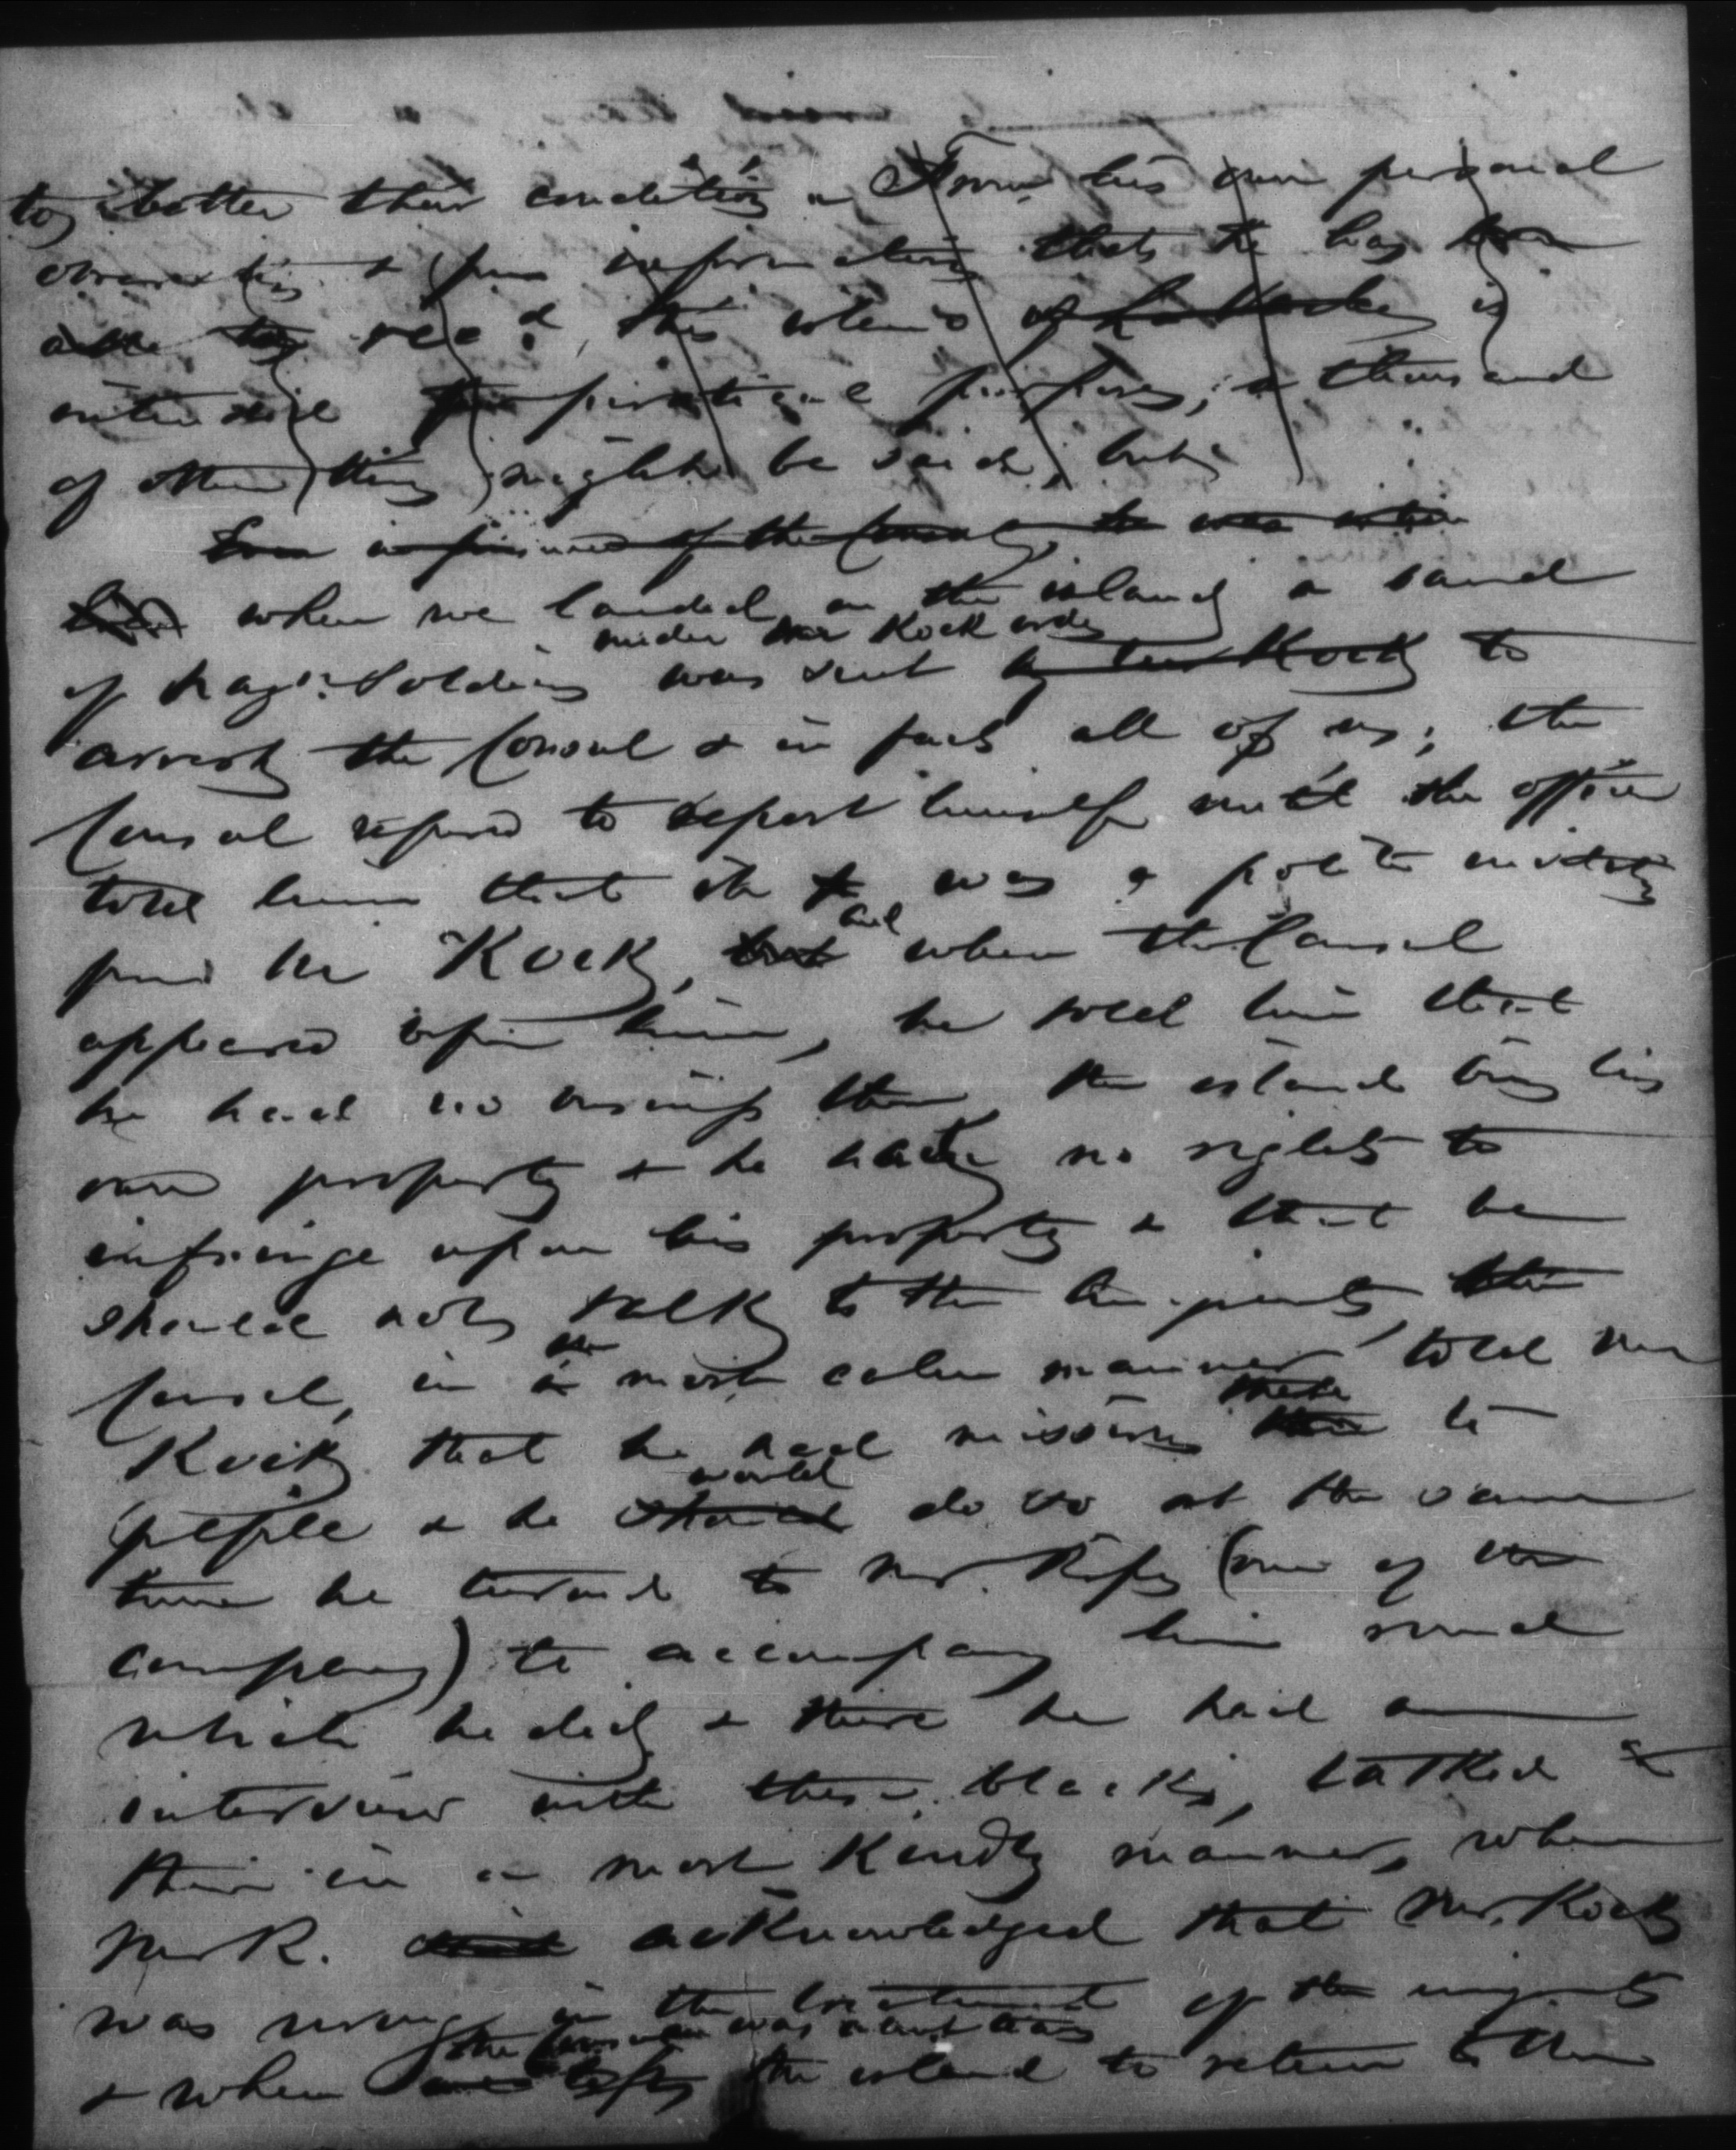 to better their condition. From his own personal
observation & from information that he has been
able to rec.d, this island of La Vache is
intended for piratical purposes; a thousand
of other things might be said, but
Even informed of the Consul, he was
when we landed on the island a band
under Mr Kock order
of Hayn. Soldiers was sent by Mr Kock to
arrest the Consul & in fact all of us; the
Consul refused to report himself until the officer
told him that it was a polite invitation
from Mr Kock, but and when the Consul
appeared before him, he told him that
he had no business there, the island being his
own property & he had no rights to
infringe upon his property & that he
should not talk to the emigrants, the
Consul, in a the most calm manner told Mr
Kock that he had mission there to
people & he should would do so at the same
time he turned to Mr. (one of the
company) to accompany him round
which he did & there he had an
interview with these blacks, talked to
them in a most kindly manner, when
Mr R. acknowledged that Mr. Kock
was wrong in the treatment of the emigrants
the Consul was about to leave
& when the island to return to the